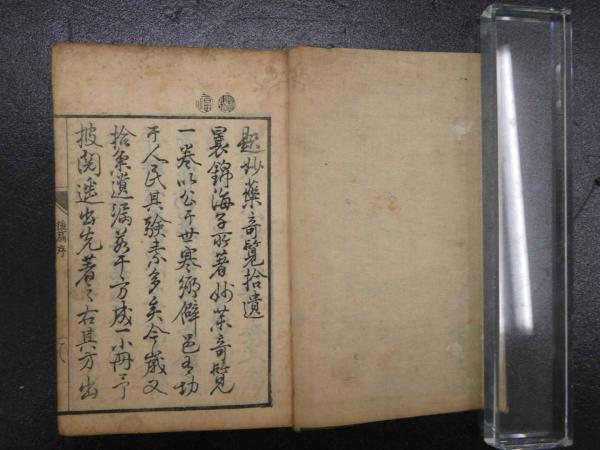 題妙藥奇覽拾遺
曩錦海子所著妙薬奇覧
一卷以公于世寒鄉僻邑有功
于人民其驗素多矣今歲又
拾集遺漏若干方成一小冊予
披閱遂出先著之右其方出
拾遺序